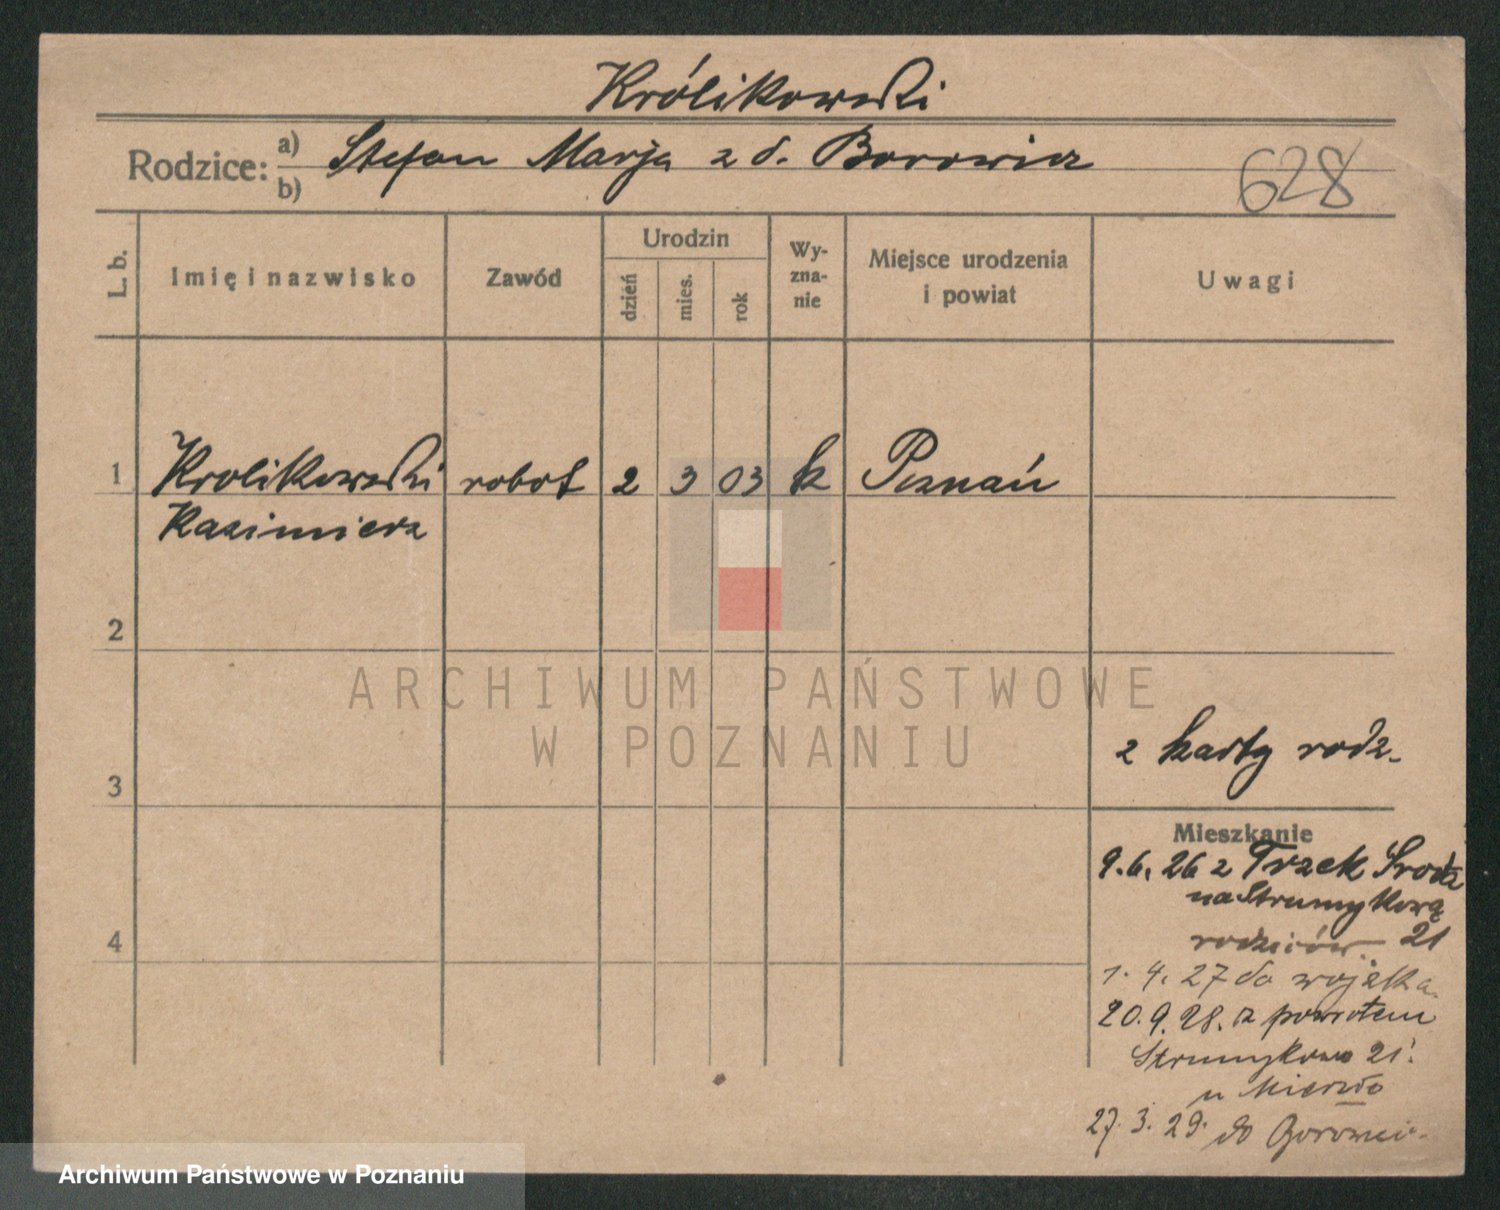 Królikowski
Rodzice: a) b) Stefan Marja z d. Borowicz
628
L. b. Imię i nazwisko Zawód Urodzin dzień mies. rok Wy-zna-nie Miejsce urodzenia i powiat Uwagi
1 Krolikowski robot 2 3 03 k Poznań
Kazimierz
2
3
4
z karty rodz.
Mieszkanie
9.6.26 z Trzek Środa
na Strumykową
rodziców 21
1.4.27 do wojska
20.9.28. z powrotem
Strumykowa 21
u
27.3.29. do
ARCHIWUM PAŃSTWOWE
W POZNANIU
Archiwum Państwowe w Poznaniu